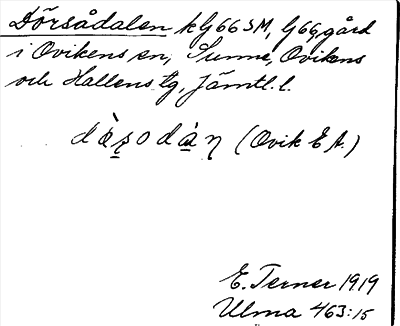 Dörsådalen kG66SM, G66, gård
i Ovikens sn, Sunne, Ovikens
och Hallens tg, Jämtl. l.
dòʂodàn (Ovik E A.)
E. Terner 1919
Ulma 463:15